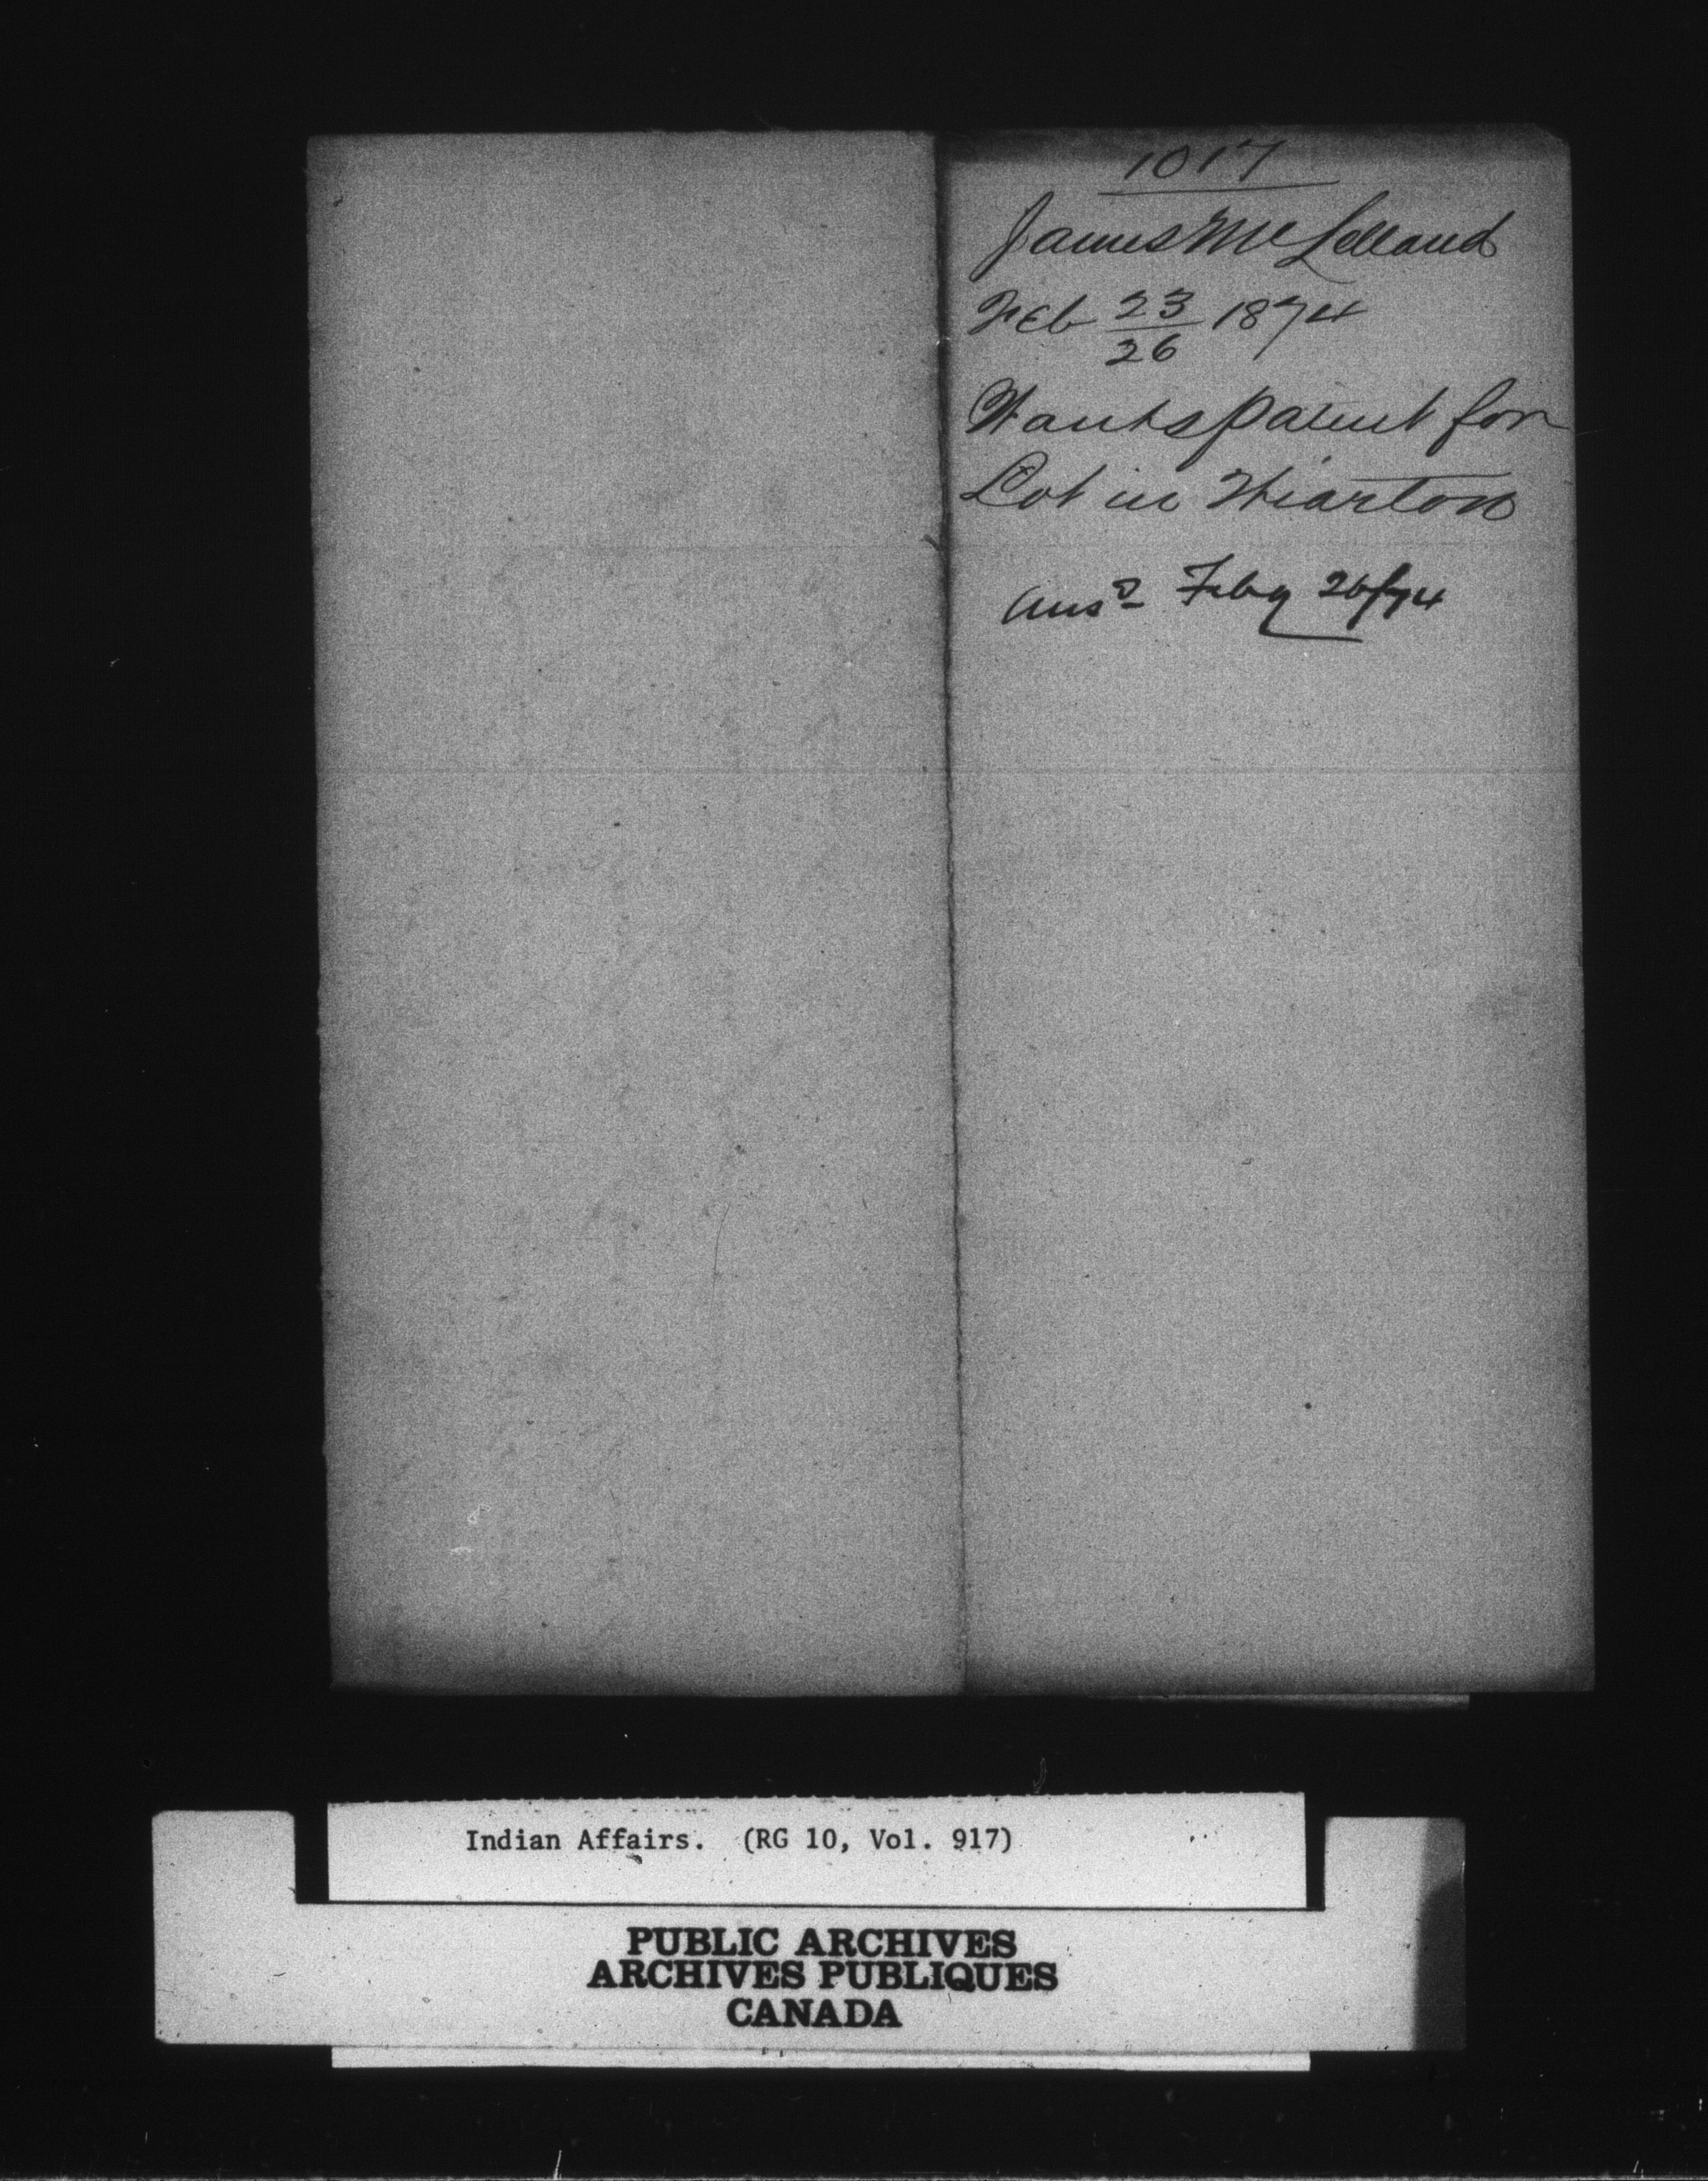 1017
James McLelland
Feb 23/26 1874
Wants patent for
Lot in Wiarton
Ansd Feby 26/74
Indian Affairs. (RG 10, Vol. 917)
PUBLIC ARCHIVES
ARCHIVES PUBLIQUES
CANADA